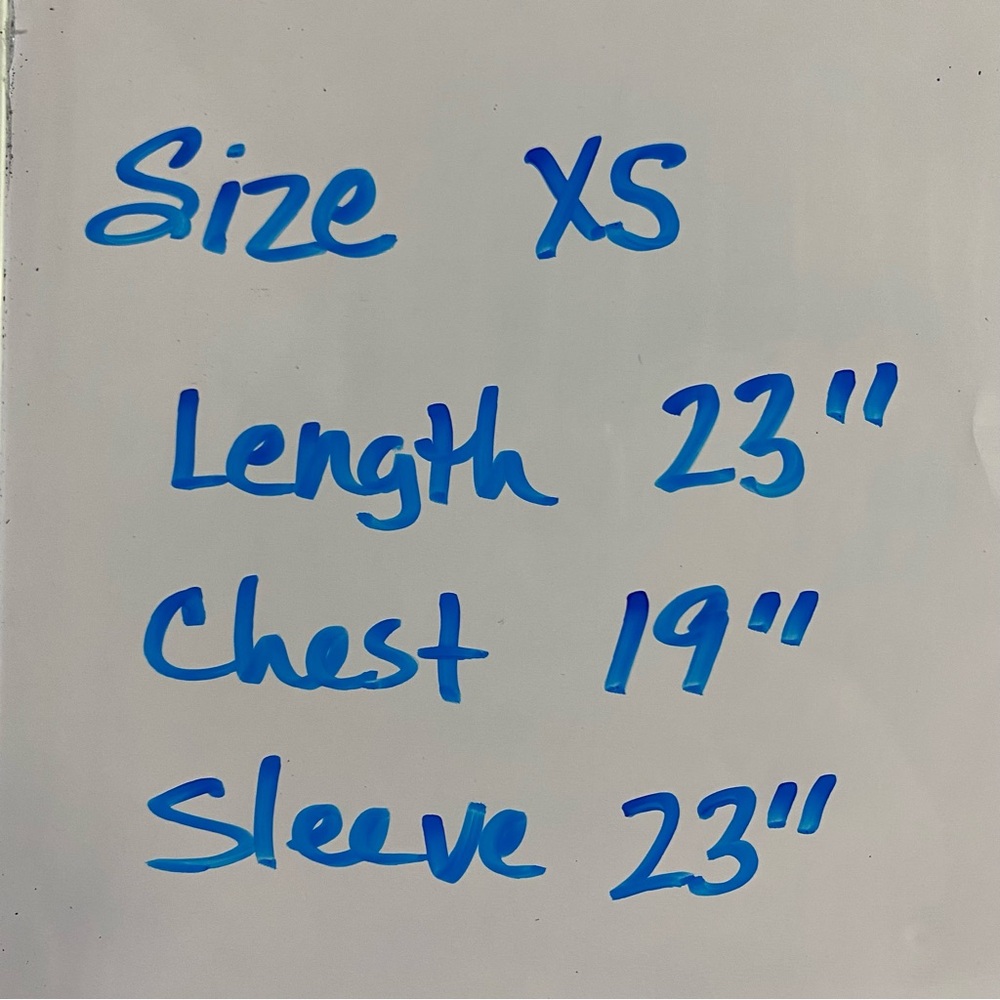 Size XS
Length 23"
Chest 19"
Sleeve 23"